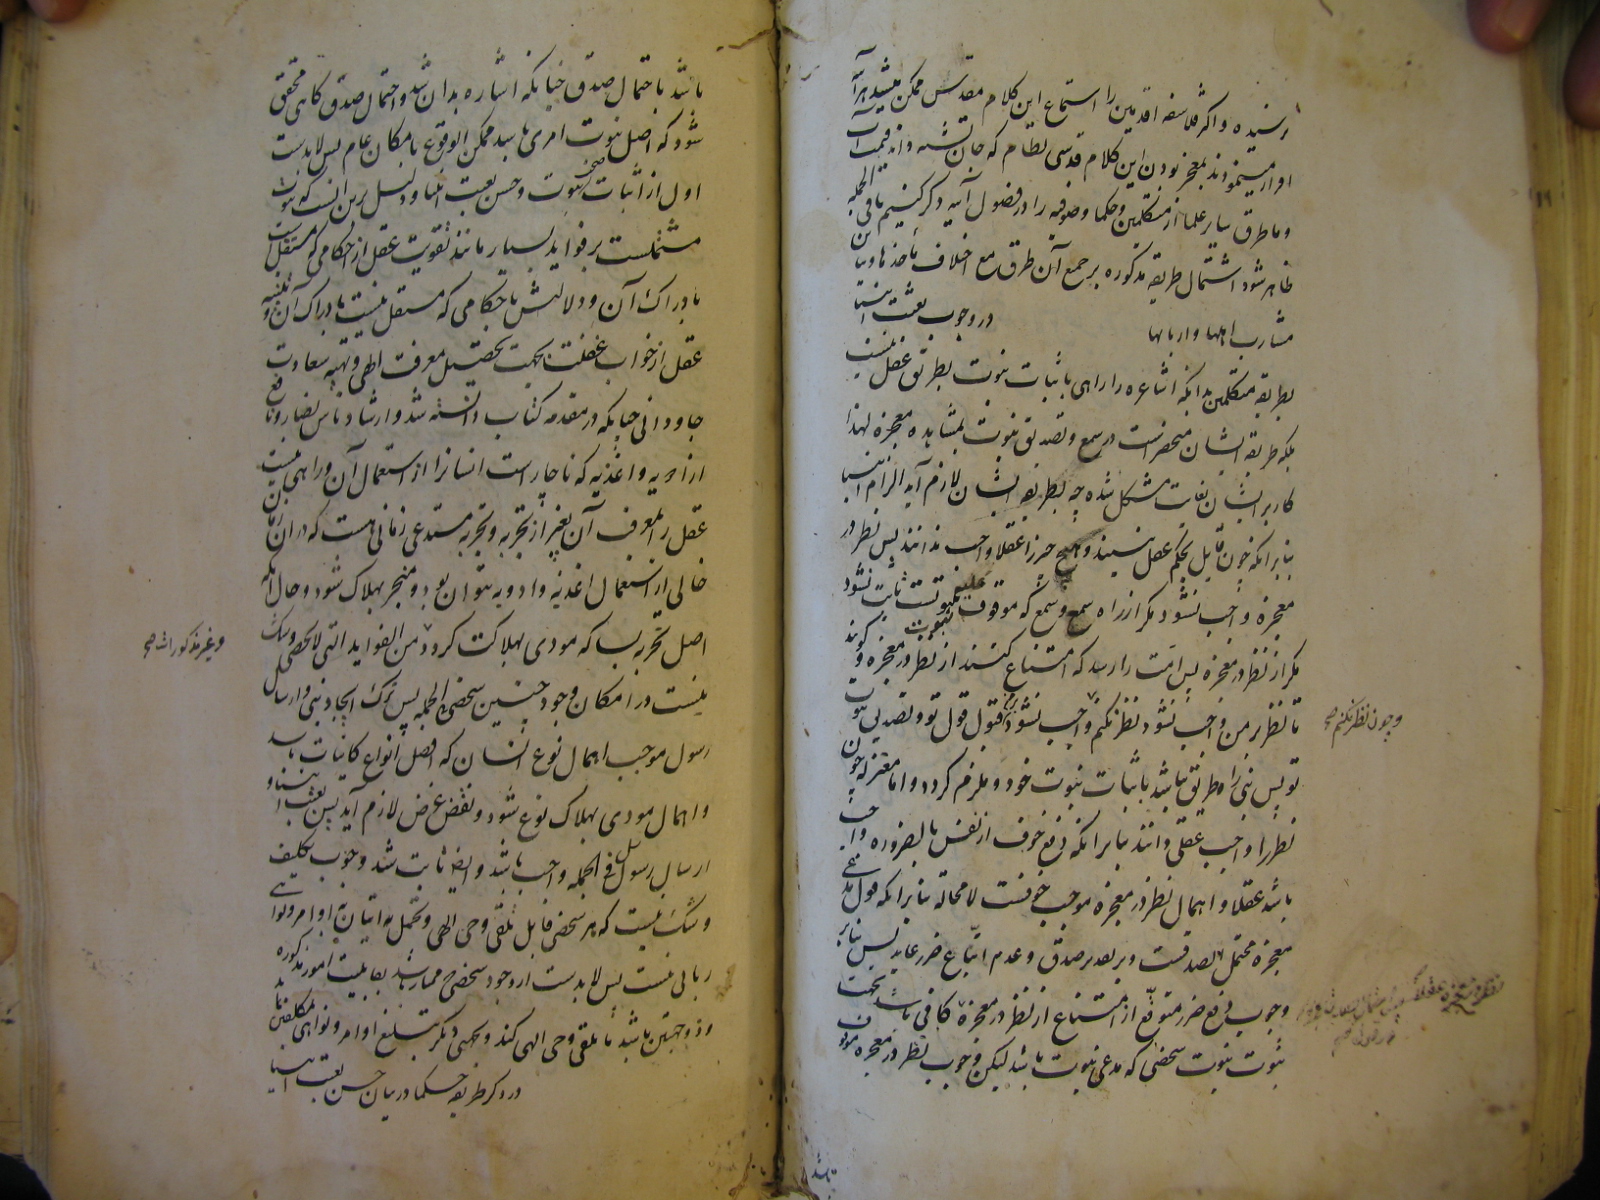 نرسیده و اگر فلاسفه اقدمین را استماع این کلام مقدس ممکن میشد هر آینه
اقرار مینمودند بمعجز بودن این کلام قدسی نظام که جان تشنه داند قیمت آب
و ما طرق سایر علما از متکلمین و حکما و صوفیه را در فصول آتیه ذکر کنیم تا فی الجمله
ظاهر شود اشتمال طریقه مذکوره بر جمیع آن طرق مع اختلاف مأخذها و تباین
مشارب اهلها و اربابها
در وجوب بعثت انبیا
بطریقه متکلمین بدانکه اشاعره را راهی باثبات نبوت بطریق عقل نیست
بلکه طریقه ایشان منحصر است در سمع و تصدیق نبوت بمشاهده معجزه لهذا
کار بر ایشان بغایت مشکل شده چه بطریقه ایشان لازم آید الزام انبیا
بنابر آنکه چون قایل بحکم عقل نیستند و هیچ چیز را عقلا واجب ندانند پس نظر در
معجزه واجب نشود مگر از راه سمع و سمع که موقوف بثبوت نبوتست ثابت نشود
مگر از نظر در معجزه پس امت را رسد که امتناع کنند از نظر در معجزه و گویند
تا نظر بر من واجب نشود نظر نکنم و واجب نشود قبول قول تو و تصدیق نبوت
و چون نظر نکنم صح
تو پس نبی را طریق نباشد باثبات نبوت خود و ملزم گردد و اما معتزله چون
نظر را واجب عقلی دانند بنابر آنکه دفع خوف از نفس بالضروره واجب
باشد عقلا و اهمال نظر در معجزه موجب خوفست لا محاله بنابر آنکه قول مدعی
معجزه محتمل الصدقست و بر تقدیر صدق و عدم اتباع ضرر عاید پس بنابر
وجوب دفع ضرر متوقع از امتناع از نظر در معجزه کافی باشد بجهت
ثبوت نبوت شخصی که مدعی نبوت باشد لیکن وجوب نظر در معجزه موقوف
باشد
باشد باحتمال صدق چنانکه اشاره بدان شد و احتمال صدق گاهی محقق
شود که اصل نبوت امری باشد ممکن الوقوع بامکان عام پس لابدست
اول از اثبات صحت نبوت و حسن بعثت انبیا و دلیل برین آنست که نبوت
مشتملست بر فواید بسیار مانند تقویت عقل از احکامی که مستقلست
بادراک آن و دلالتش باحکامی که مستقل نیست بادراک آن و تنبیه
عقل از خواب غفلت بجهت تحصیل معرفت الهی و تهیه سعادت
جاودانی چنانکه در مقدمه کتاب دانسته شد و ارشاد ناس بمضار و منافع
از ادویه و اغذیه که ناچار است انسانرا از استعمال آن و راهی نیست
عقل را بمعرفت آن بغیر از تجربه و تجربه مستدعی زمانی هست که در آن زمان
خالی از استعمال اغذیه و ادویه نتوان بود و منجر بهلاک شود و حال آنکه
اصل تجربه بسا که مودی بهلاکت گردد من الفواید التی لا تحصی و شک
و غیر مذکورات صح
نیست در امکان وجود چنین شخصی فی الجمله پس ترک ایجاد نبی و ارسال
رسول موجب اهمال نوع انسان که افضل انواع کاینات باشد
و اهمال مودی بهلاک نوع شود و نقض غرض لازم آید پس بعث انبیا و
ارسال رسل فی الجمله واجب باشد و ایضا ثابت شد وجوب تکلیف
و شک نیست که هر شخصی قابل تلقی وحی الهی و تحمل اتیان باوامر و نواهی
ربانی نیست پس لابدست از وجود شخصی ممتاز بقابلیت امور مذکوره
و ذو جهتین باشد تا تلقی وحی الهی کند و بجهتی دیگر تبلیغ اوامر و نواهی بمکلفین نماید
در ذکر طریقه حکما در بیان حسن بعثت انبیا